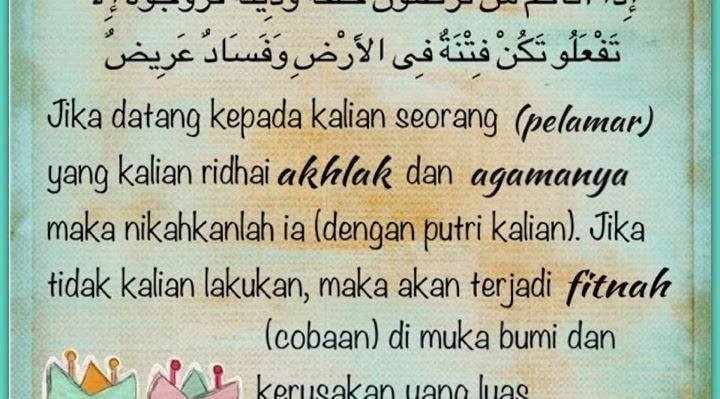 إِذَا أَتَاكُمْ مَنْ تَرْضَوْنَ خُلُقَهُ وَدِينَهُ فَزَوِّجُوهُ إِلاَّ
تَفْعَلُو تَكُنْ فِتْنَةٌ فِى الأَرْضِ وَفَسَادٌ عَرِيضٌ
Jika datang kepada kalian seorang (pelamar)
yang kalian ridhai akhlak dan agamanya
maka nikahkanlah ia (dengan putri kalian). Jika
tidak kalian lakukan, maka akan terjadi fitnah
(cobaan) di muka bumi dan
kerusakan yang luas